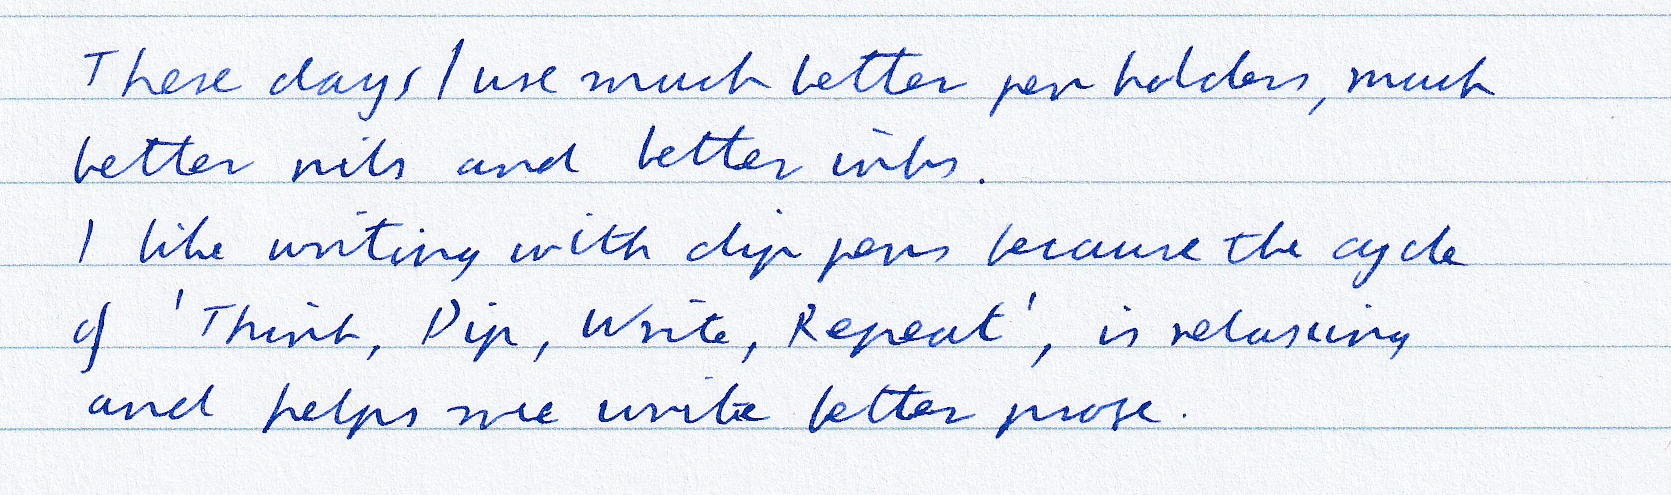 These days I use much better pen holders, much
better nibs and better inks.
I like writing with dip pens because the cycle
of 'Think, Dip, Write, Repeat', is relaxing
and helps me write better prose.